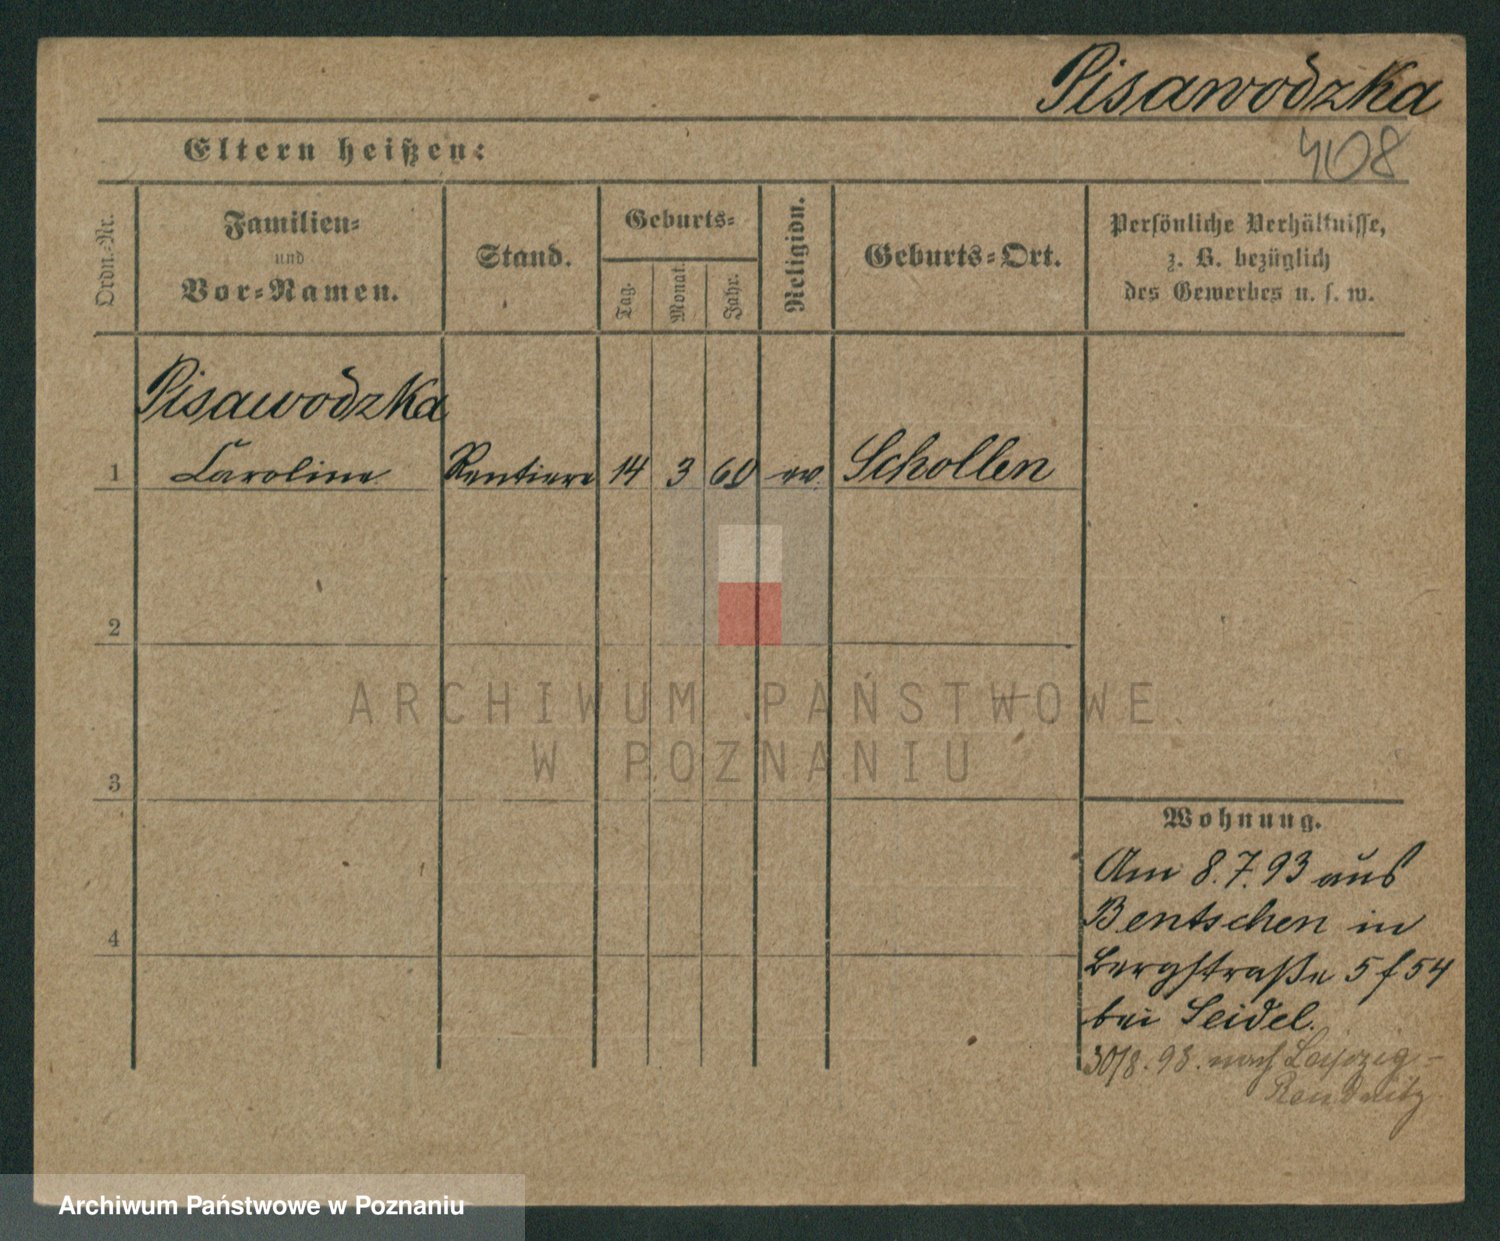 Pisawodzka
408
Eltern heißen:
Ordn.-Nr.
Familien-
und
Vor-Namen.
Stand.
Geburts-
Tag.
Monat.
Jahr.
Religion.
Geburts-Ort.
Persönliche Verhältnisse,
z. B. bezüglich
des Gewerbes u. s. w.
Pisawodzka
1 Caroline Rentiere 14 3 60 ev. Schollen
2
3
4
ARCHIWUM PAŃSTWOWE
W POZNANIU
Wohnung.
Am 8.7.93 aus
Bentschen in
Bergstraße 5 f 54
bei Seidel.
30/8. 98. nach Leipzig-
Reudnitz
Archiwum Państwowe w Poznaniu